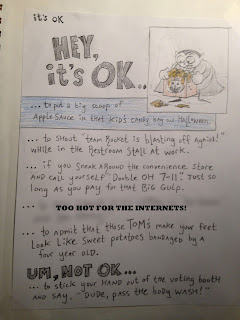 it's OK
HEY,
it's OK...
... to put a big scoop of
Apple Sauce in that kid's candy bag on Halloween.
... to shout "team Rocket is blasting off again!"
while in the Restroom Stall at work.
... if you sneak around the convenience store
and call yourself "Double OH 7-11". Just so
long as you pay for that Big Gulp.
TOO HOT FOR THE INTERNETS!
... to admit that those TOM's make your feet
look like sweet potatoes bandaged by a
four year old.
UM, NOT OK...
... to stick your HAND out of the voting booth
and say, "DUDE, pass the body wash!"